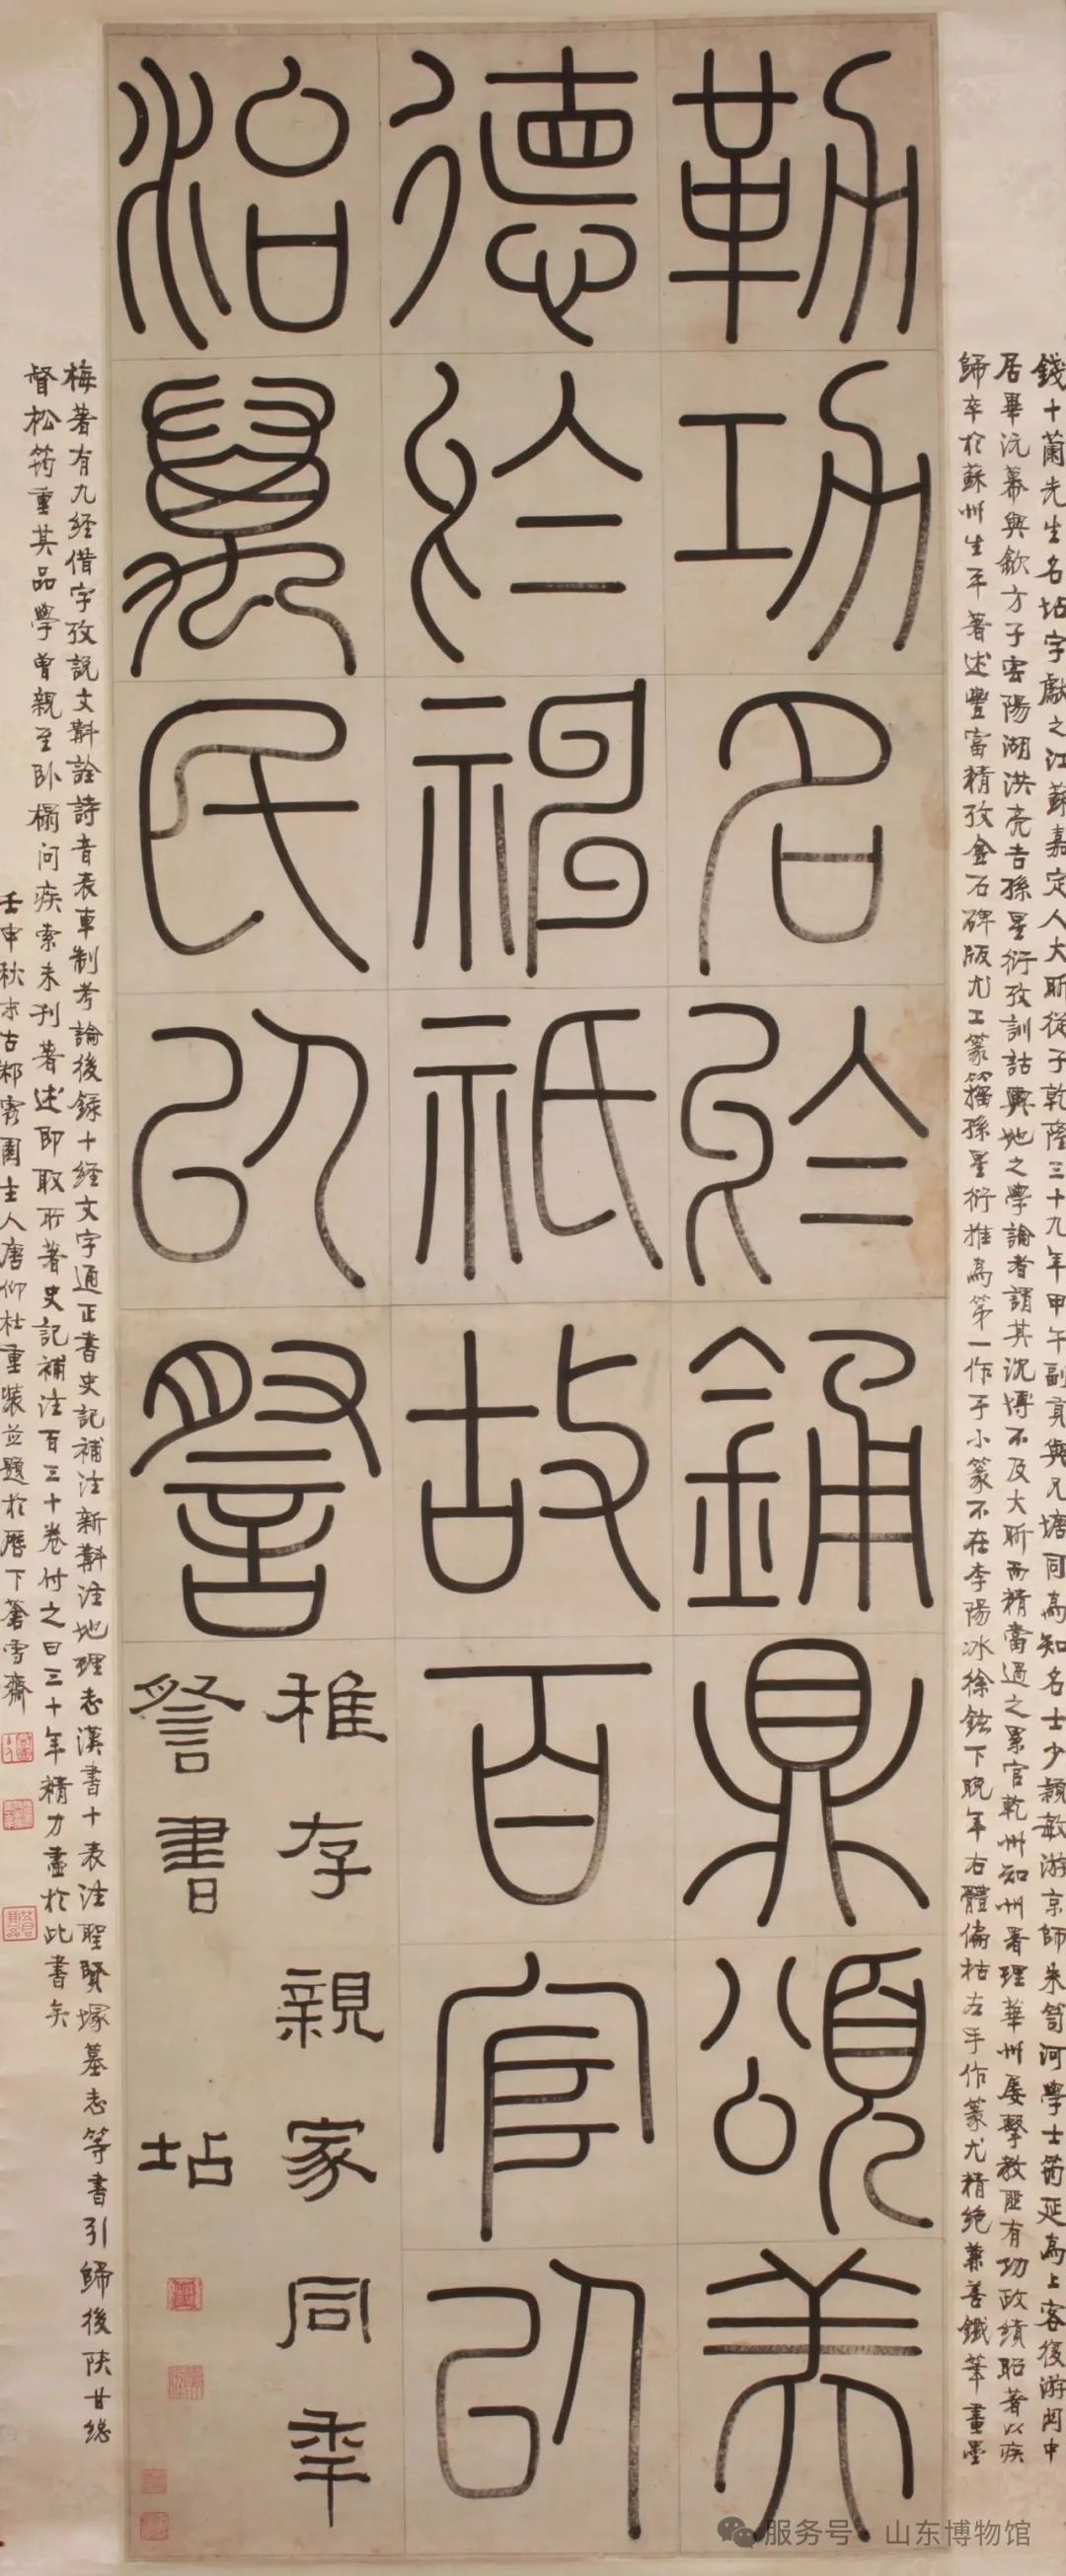 錢十蘭先生名坫字獻之江蘇嘉定人大昕從子乾隆三十九年甲午副貢與兄塘同為知名士少穎敏游京師朱笥河學士筠延為上客後游関中
居畢沅幕與歙方子雲陽湖洪亮吉孫星衍攷訓詁輿地之學論者謂其沉博不及大昕而精當過之累官乾州知州署理華州屢擊教匪有功政績昭著以疾
歸卒於蘇州生平著述豐富精攷金石碑版尤工篆籀孫星衍推為第一作于小篆不在李陽冰徐鉉下晚年右體偏枯左手作篆尤精絕兼善鐵筆畫墨
勒功名於銿鼎頌美
德於神祇故百官以
治萬民以詧
稚存親家同年
詧書 坫
梅著有九經借字攷說文斠詮詩音表車制考論後錄十經文字通正書史記補注新斠注地理志漢書十表注聖賢塚墓志等書引歸後陝甘總
督松筠重其品學曾親至臥榻問疾索未刊著述即取所著史記補注百三十卷付之曰三十年精力盡於此書矣
壬申秋末古鄒霧園主人唐仰杜重裝並題於歷下蒼雪齋
服务号 · 山东博物馆